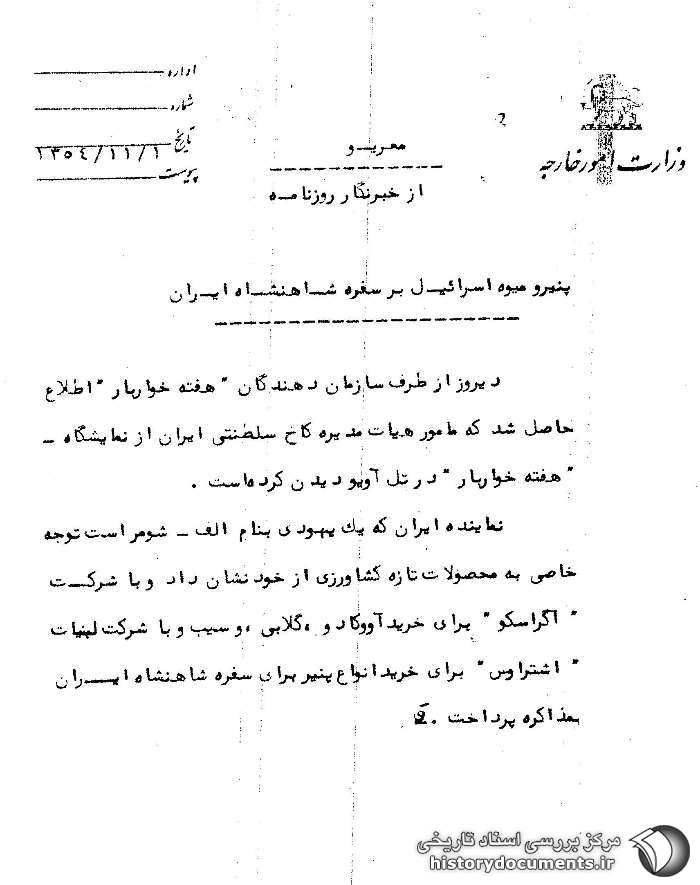 وزارت امور خارجه
اداره
شماره
تاریخ ۱۳۵۴/۱۱/۱
پیوست
معریو
از خبرنگار روزنامه
پنیر و میوه اسرائیل بر سفره شاهنشاه ایران
دیروز از طرف سازمان دهندگان "هفته خواربار" اطلاع
حاصل شد که مامور هیات مدیره کاخ سلطنتی ایران از نمایشگاه -
"هفته خواربار" در تل آویو دیدن کرده‌است .
نماینده ایران که یك یهودی بنام الف - شومر است توجه
خاصی به محصولات تازه کشاورزی از خود نشان داد و با شرکت
"اگراسکو" برای خرید آووکادو ،گلابی ،و سیب و با شرکت لبنیات
"اشتراوس" برای خرید انواع پنیر برای سفره شاهنشاه ایران
بمذاکره پرداخت .
مرکز بررسی اسناد تاریخی
historydocuments.ir